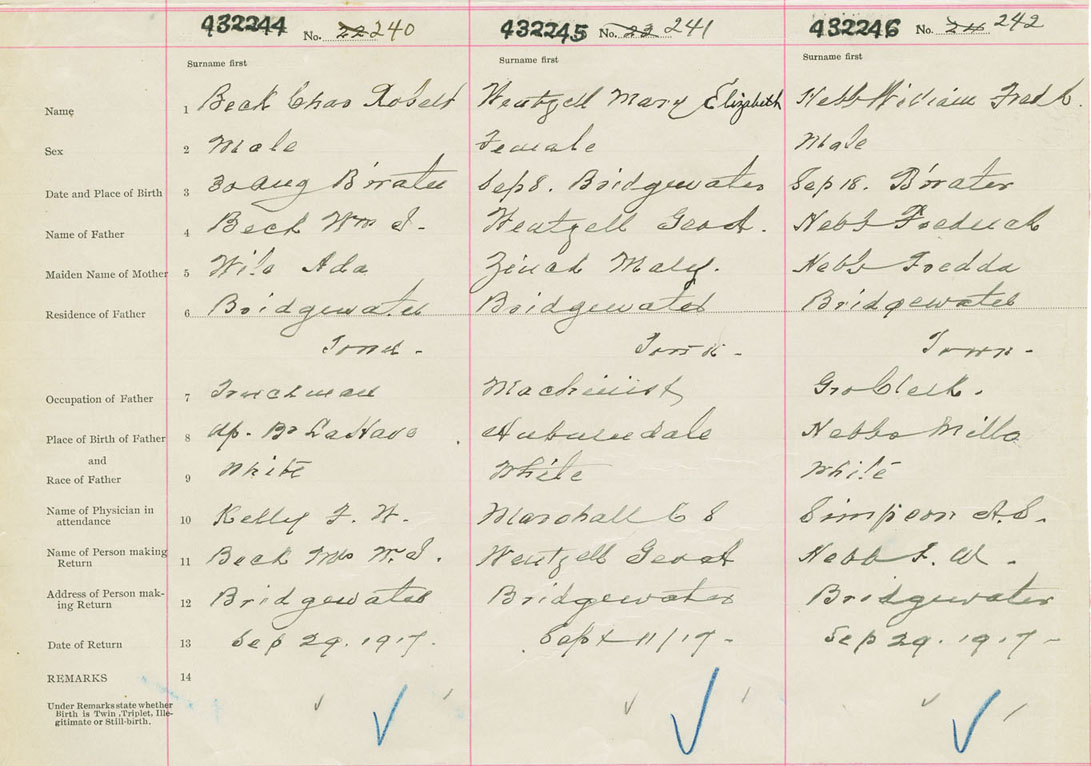 432244 No. 22 240 432245 No. 23 241 432246 No. 24 242
Surname first Surname first Surname first
Name 1 Beck Chas Robert Wentzell Mary Elizabeth Hebb William Fred k.
Sex 2 Male Female Male
Date and Place of Birth 3 30 Aug B'water Sep 8. Bridgewater Sep 18. B'water
Name of Father 4 Beck Wm S. Wentzell Geo A. Hebb Fredrick
Maiden Name of Mother 5 Wile Ada Zinck Mary. Hebb Fredda
Residence of Father 6 Bridgewater Bridgewater Bridgewater
Town - Town - Town -
Occupation of Father 7 Truckman Machinist Gro Clerk.
Place of Birth of Father 8 Up. Br LaHave Auburndale Hebbs Mills
and
Race of Father 9 White White White
Name of Physician in
attendance 10 Kelly F. W. Marshall C S Simpson A.S.
Name of Person making
Return 11 Beck Mrs W. S. Wentzell Geo A Hebb F. W.
Address of Person mak-
ing Return 12 Bridgewater Bridgewater Bridgewater
Date of Return 13 Sep 29. 1917. Sept 11/17 - Sep 29. 1917 -
REMARKS 14
Under Remarks state whether
Birth is Twin, Triplet, Ille-
gitimate or Still-birth.